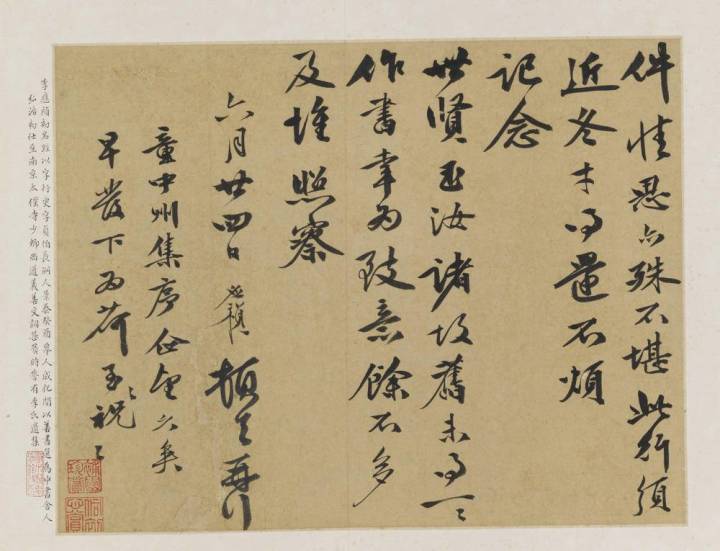 件情思亦殊不堪此行須
近冬才得還不煩
記念
世賢玉汝諸故舊未得一一
作書幸為致意餘不多
及惟照察
六月廿四日應禎頓首再拜
童中州集序
早發下為荷至祝
李應禎初名甡以字行更字貞伯長洲人景泰癸酉舉人成化間以善書選為中書舍人
弘治初仕至南京太僕寺少卿尚道義善文詞 時譽有李氏遺集